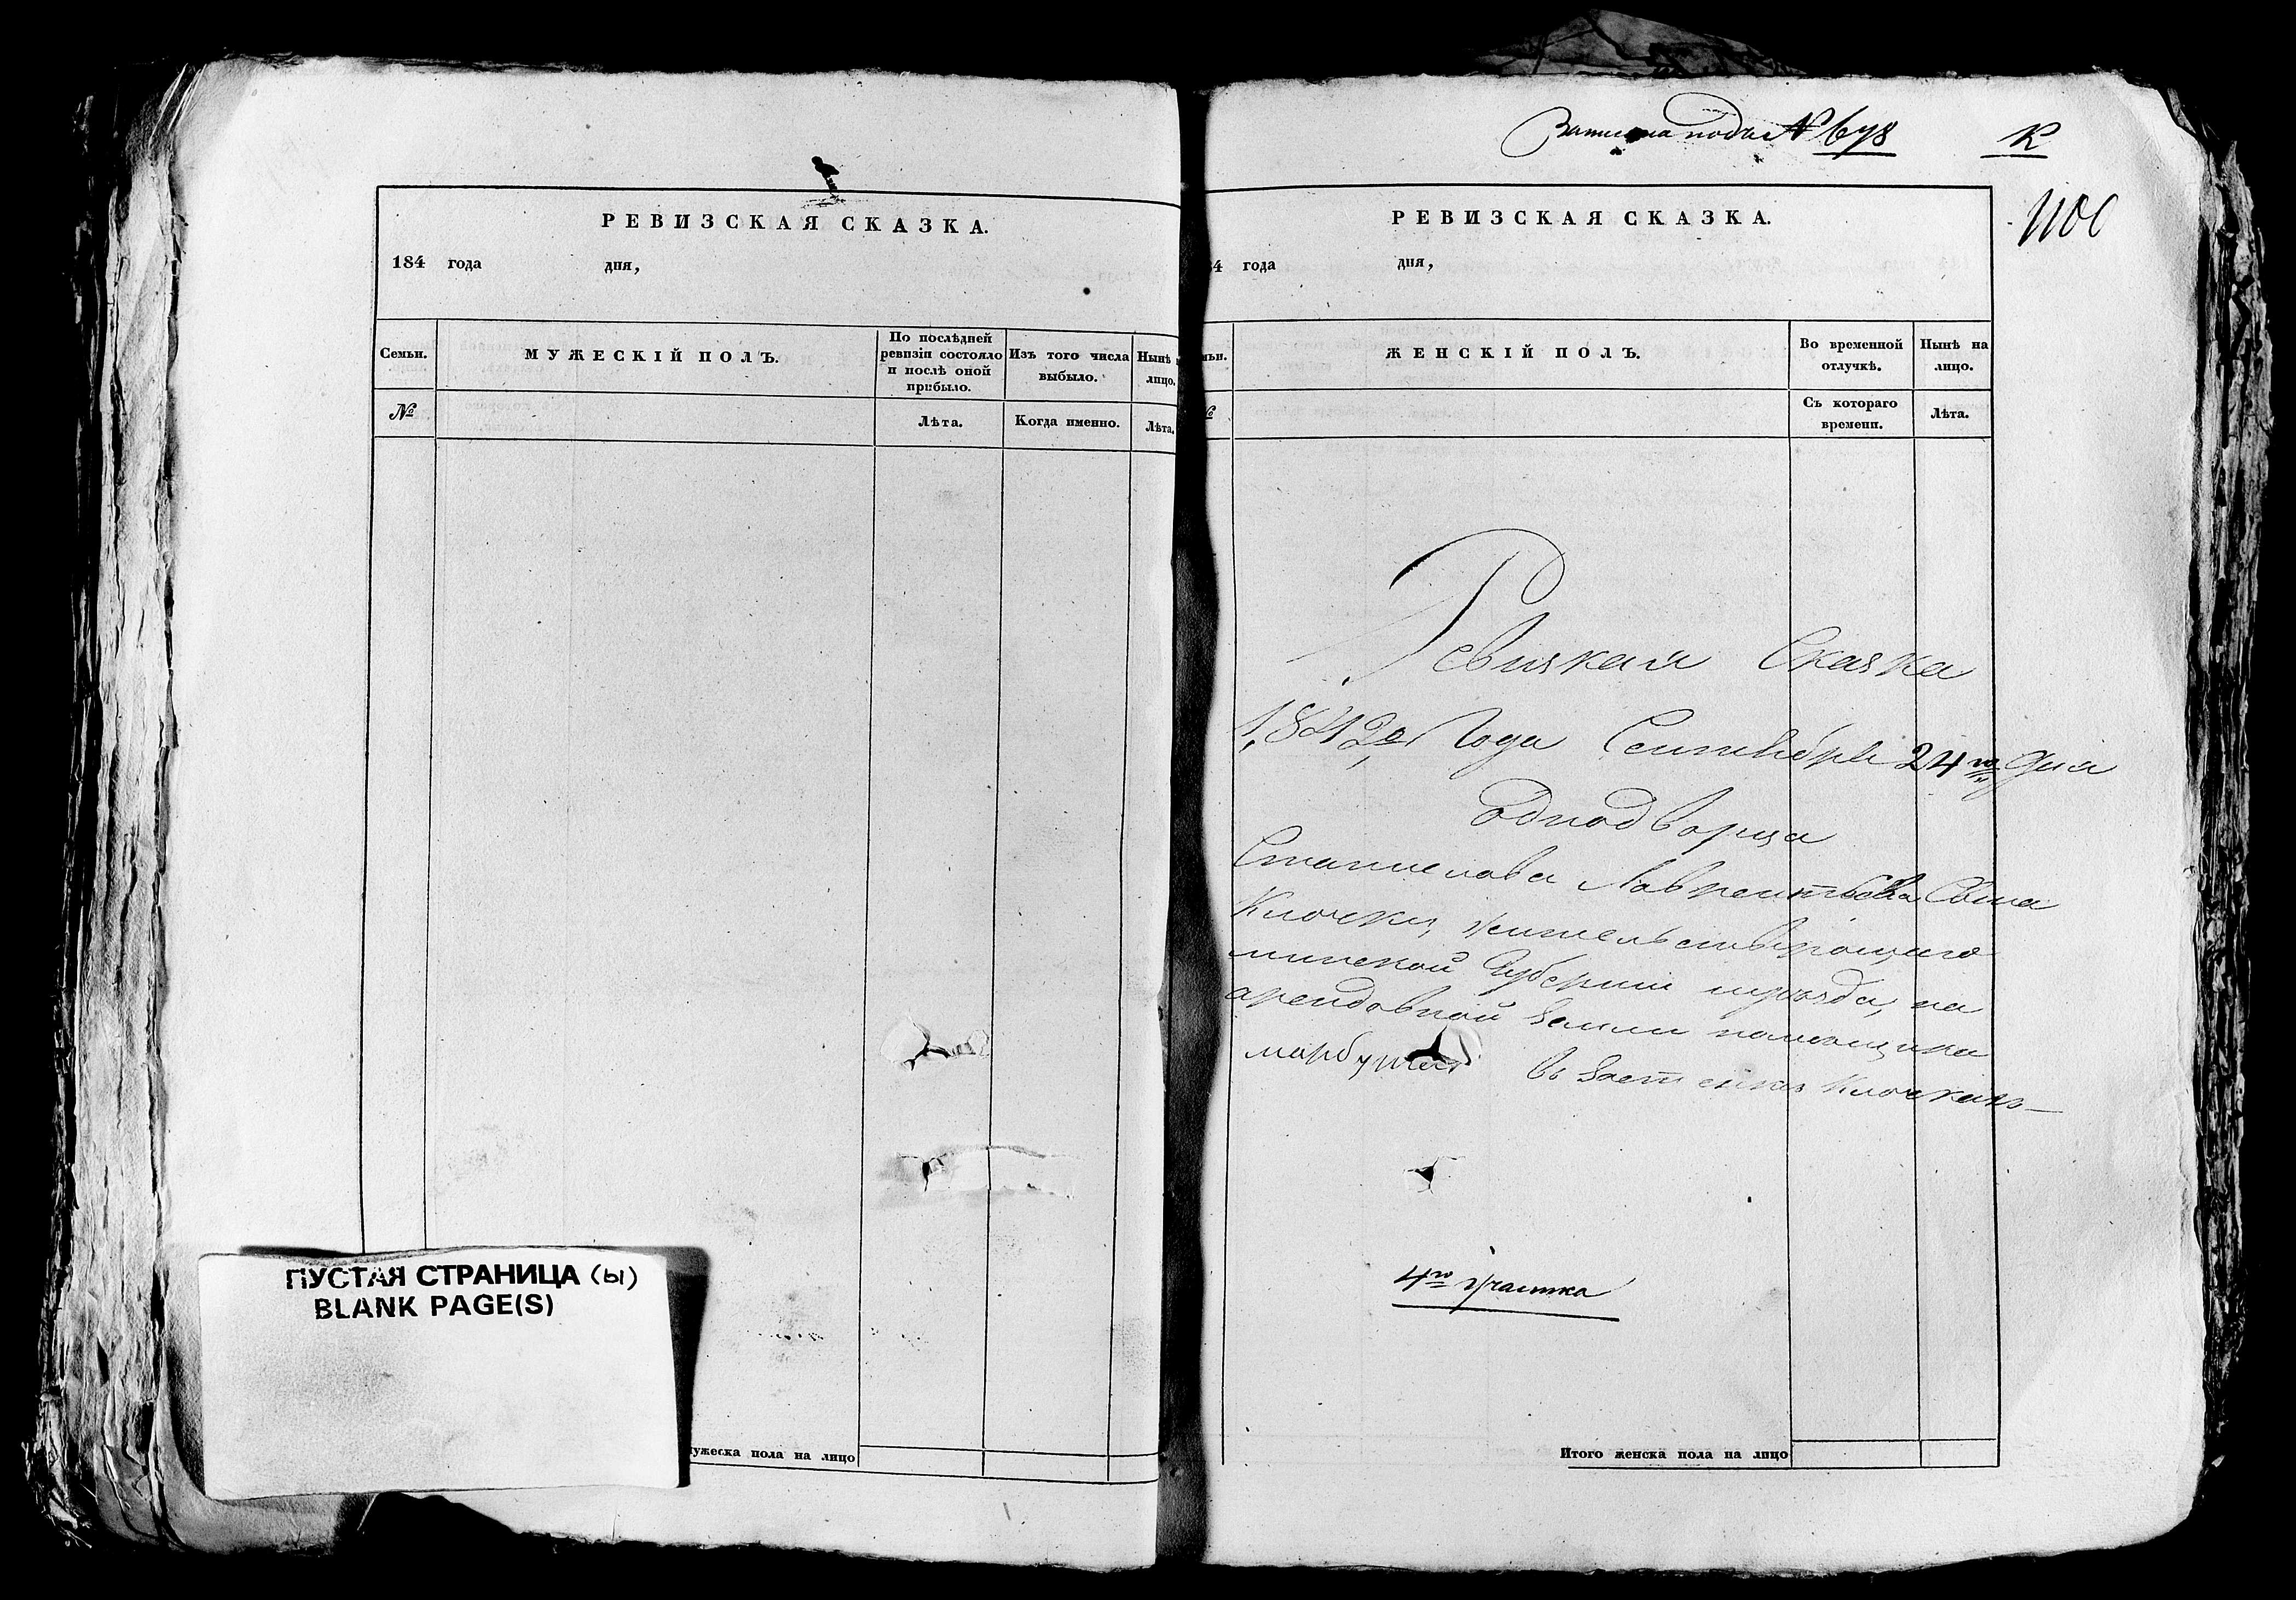 РЕВИЗСКАЯ СКАЗКА.
184 года дня,
Семьи.
МУЖЕСКІЙ ПОЛЪ.
По послѣдней ревизіи состояло и послѣ оной прибыло.
Изъ того числа выбыло.
Нынѣ лицо.
№
Лѣта.
Когда именно.
Лѣта.
ПУСТАЯ СТРАНИЦА (ы)
BLANK PAGE(S)
мужеска пола на лицо
подъ № 678
К
РЕВИЗСКАЯ СКАЗКА.
4 года дня,
ЖЕНСКІЙ ПОЛЪ.
Во временной отлучкѣ.
Нынѣ на лицо.
Съ котораго времени.
Лѣта.
Ревизкая Сказка
1842го Года Сентября 24го Дня
однодворца
Станислава Лаврентьева Сына
Клочки, жительствующаго
минской Губерніи и уѣзда, на
арендовной земли помѣщика
въ застенкѣ Клочкахъ
4го участка
Итого женска пола на лицо